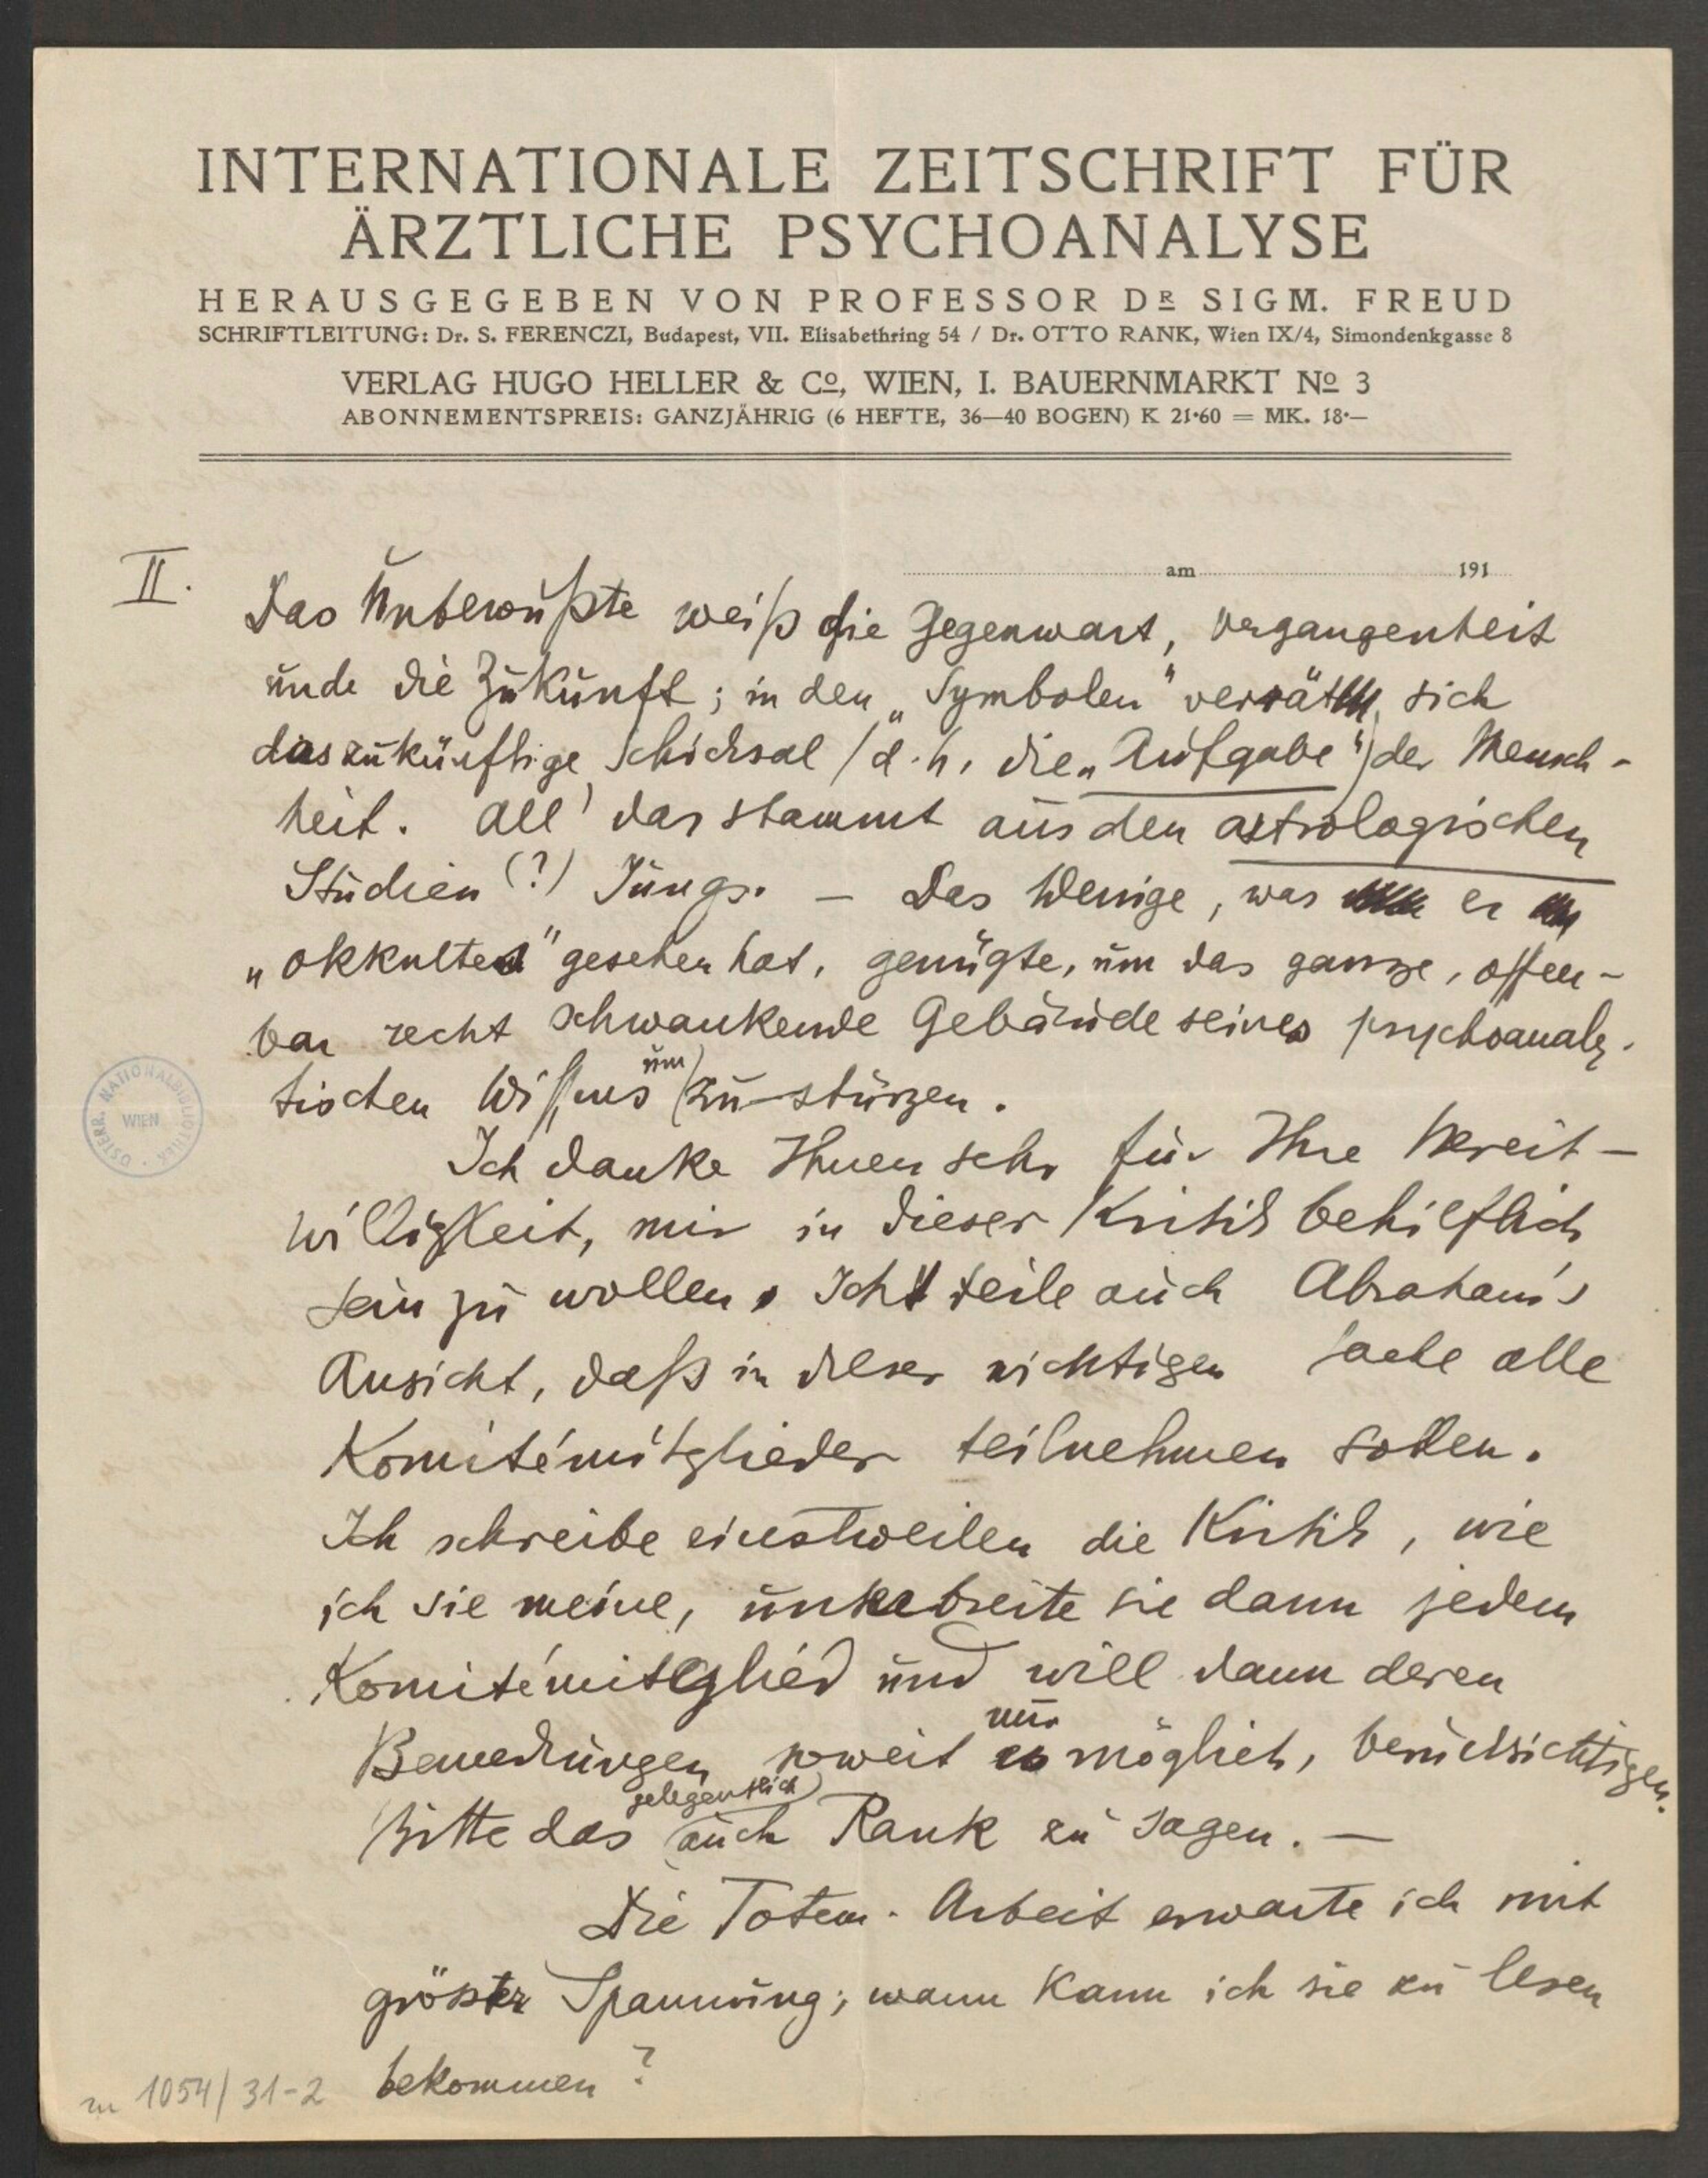 INTERNATIONALE ZEITSCHRIFT FÜR
ÄRZTLICHE PSYCHOANALYSE
HERAUSGEGEBEN VON PROFESSOR DR SIGM. FREUD
SCHRIFTLEITUNG: Dr. S. FERENCZI, Budapest, VII. Elisabethring 54 / Dr. OTTO RANK, Wien IX/4, Simondenkgasse 8
VERLAG HUGO HELLER & Co, WIEN, I. BAUERNMARKT No 3
ABONNEMENTSPREIS: GANZJÄHRIG (6 HEFTE, 36—40 BOGEN) K 21·60 = MK. 18·—
am 191
II.
Das Unbewußte weiß die Gegenwart, Vergangenheit
unde die Zukunft; in den „Symbolen" verrät sich
das zukünftige Schicksal (d. h. die „Aufgabe") der Mensch-
heit. All' das stammt aus den astrologischen
Studien (?) Jungs. — Das Wenige, was er
„okkultes" gesehen hat, genügte, um das ganze, offen-
bar recht schwankende Gebäude seines psychoanaly-
tischen Wissens umzustürzen.
Ich danke Ihnen sehr für Ihre Bereit-
willigkeit, mir in dieser Kritik behilflich
sein zu wollen. Ich teile auch Abraham's
Ansicht, daß in dieser wichtigen Sache alle
Komitémitglieder teilnehmen sollen.
Ich schreibe einstweilen die Kritik, wie
ich sie meine, unterbreite sie dann jedem
Komitémitglied und will dann deren
Bemerkungen soweit nur möglich, berücksichtigen.
Bitte das gelegentlich auch Rank zu sagen. —
Die Totem-Arbeit erwarte ich mit
größter Spannung; wann kann ich sie zu lesen
bekommen?
1054/31-2
ÖSTERR. NATIONALBIBLIOTHEK
WIEN